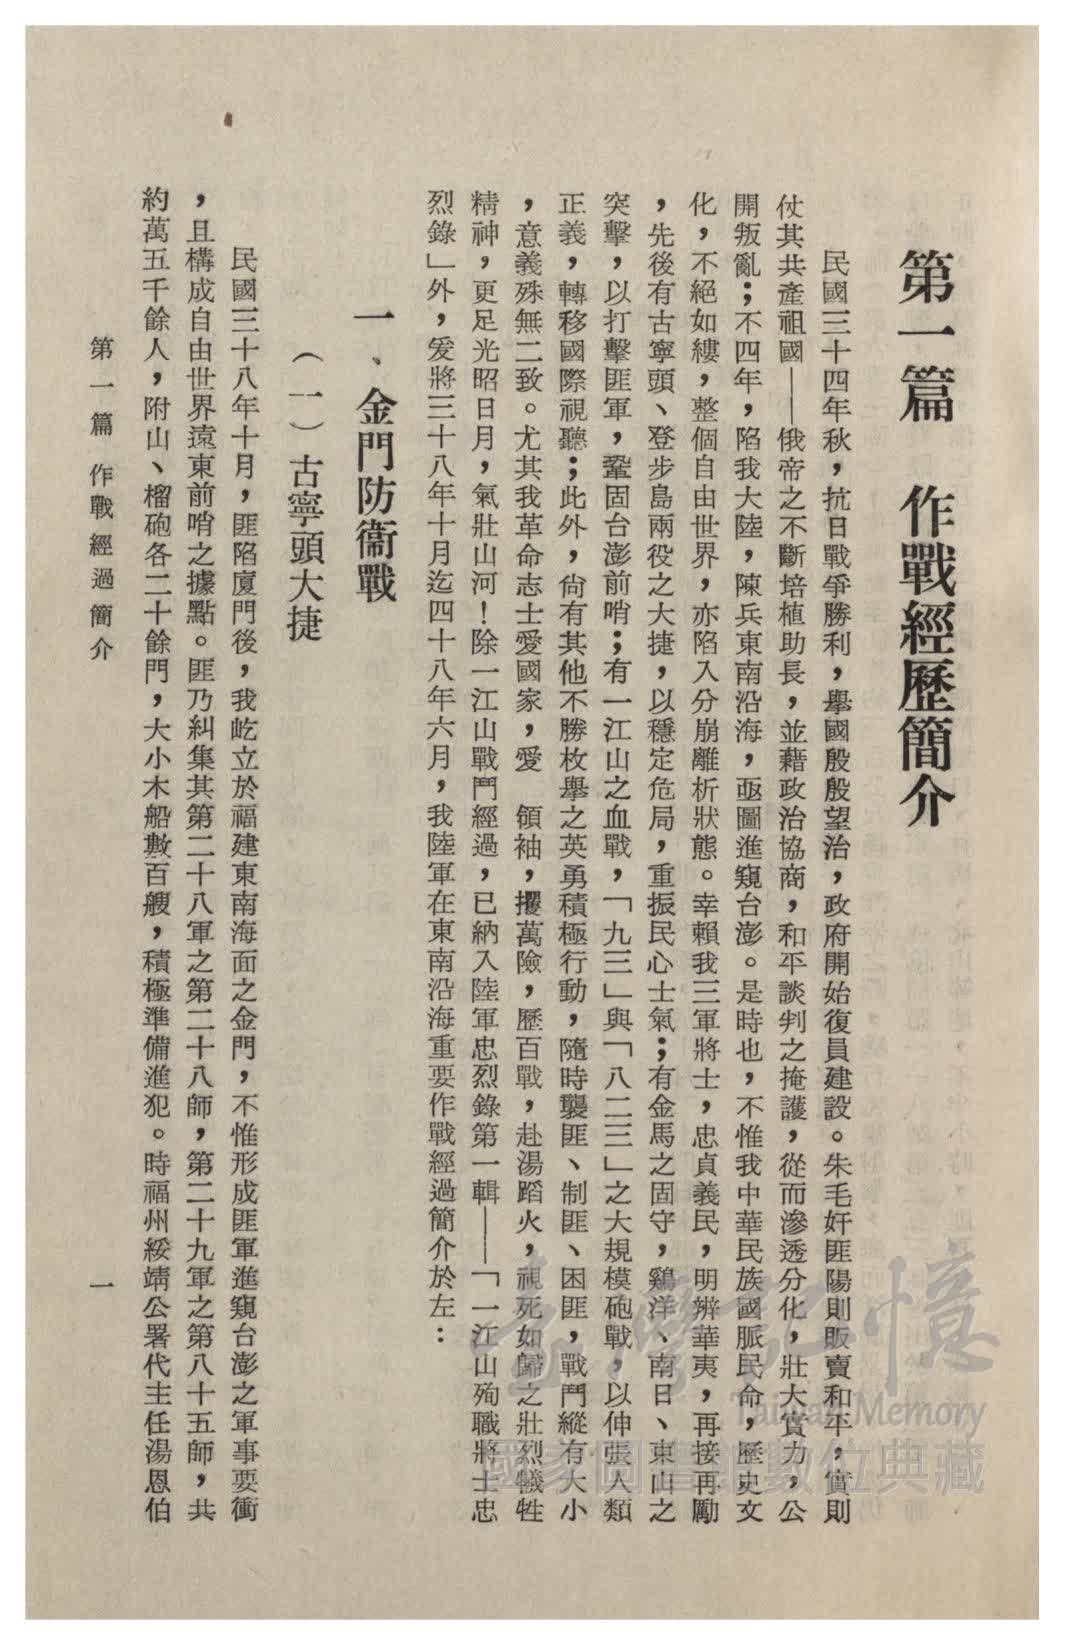 第一篇　作戰經歷簡介
民國三十四年秋，抗日戰爭勝利，舉國殷殷望治，政府開始復員建設。朱毛奸匪陽則販賣和平，實則
仗其共產祖國——俄帝之不斷培植助長，並藉政治協商，和平談判之掩護，從而滲透分化，壯大實力，公
開叛亂；不四年，陷我大陸，陳兵東南沿海，亟圖進窺台澎。是時也，不惟我中華民族國脈民命，歷史文
化，不絕如縷，整個自由世界，亦陷入分崩離析狀態。幸賴我三軍將士，忠貞義民，明辨華夷，再接再勵
，先後有古寧頭、登步島兩役之大捷，以穩定危局，重振民心士氣；有金馬之固守，鷄洋、南日、東山之
突擊，以打擊匪軍，鞏固台澎前哨；有一江山之血戰，「九三」與「八二三」之大規模砲戰，以伸張人類
正義，轉移國際視聽；此外，尙有其他不勝枚舉之英勇積極行動，隨時襲匪、制匪、困匪，戰鬥縱有大小
，意義殊無二致。尤其我革命志士愛國家，愛　領袖，攖萬險，歷百戰，赴湯蹈火，視死如歸之壯烈犧牲
精神，更足光昭日月，氣壯山河！除一江山戰鬥經過，已納入陸軍忠烈錄第一輯——「一江山殉職將士忠
烈錄」外，爰將三十八年十月迄四十八年六月，我陸軍在東南沿海重要作戰經過簡介於左：
一、金門防衞戰
（一）古寧頭大捷
民國三十八年十月，匪陷廈門後，我屹立於福建東南海面之金門，不惟形成匪軍進窺台澎之軍事要衝
，且構成自由世界遠東前哨之據點。匪乃糾集其第二十八軍之第二十八師，第二十九軍之第八十五師，共
約萬五千餘人，附山、榴砲各二十餘門，大小木船數百艘，積極準備進犯。時福州綏靖公署代主任湯恩伯
第一篇　作戰經過簡介
一
臺灣記憶
Taiwan Memory
國家圖書館數位典藏